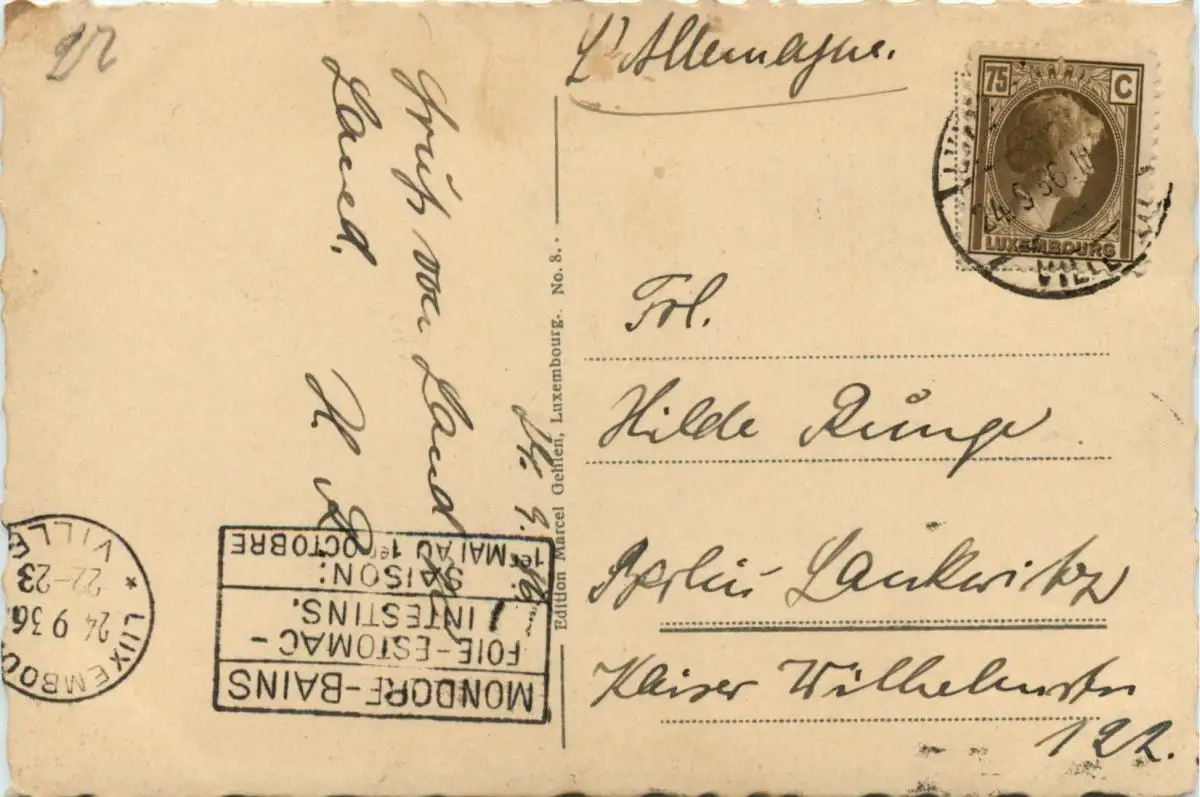 L'Allemagne.
75 C
LUXEMBOURG
24.9.36.
VILLE
Frl.
Hilde Runge
Berlin Lankwitz
Kaiser Wilhelmstr
122.
24. 9. 36.
Gruß von Land zu
Land.
H R
Edition Marcel Gehlen, Luxembourg. No. 8.
MONDORF-BAINS
FOIE-ESTOMAC-
INTESTINS.
SAISON:
1er MAI AU 1er OCTOBRE
LUXEMBOU
24 9 36
22-23
VILLE